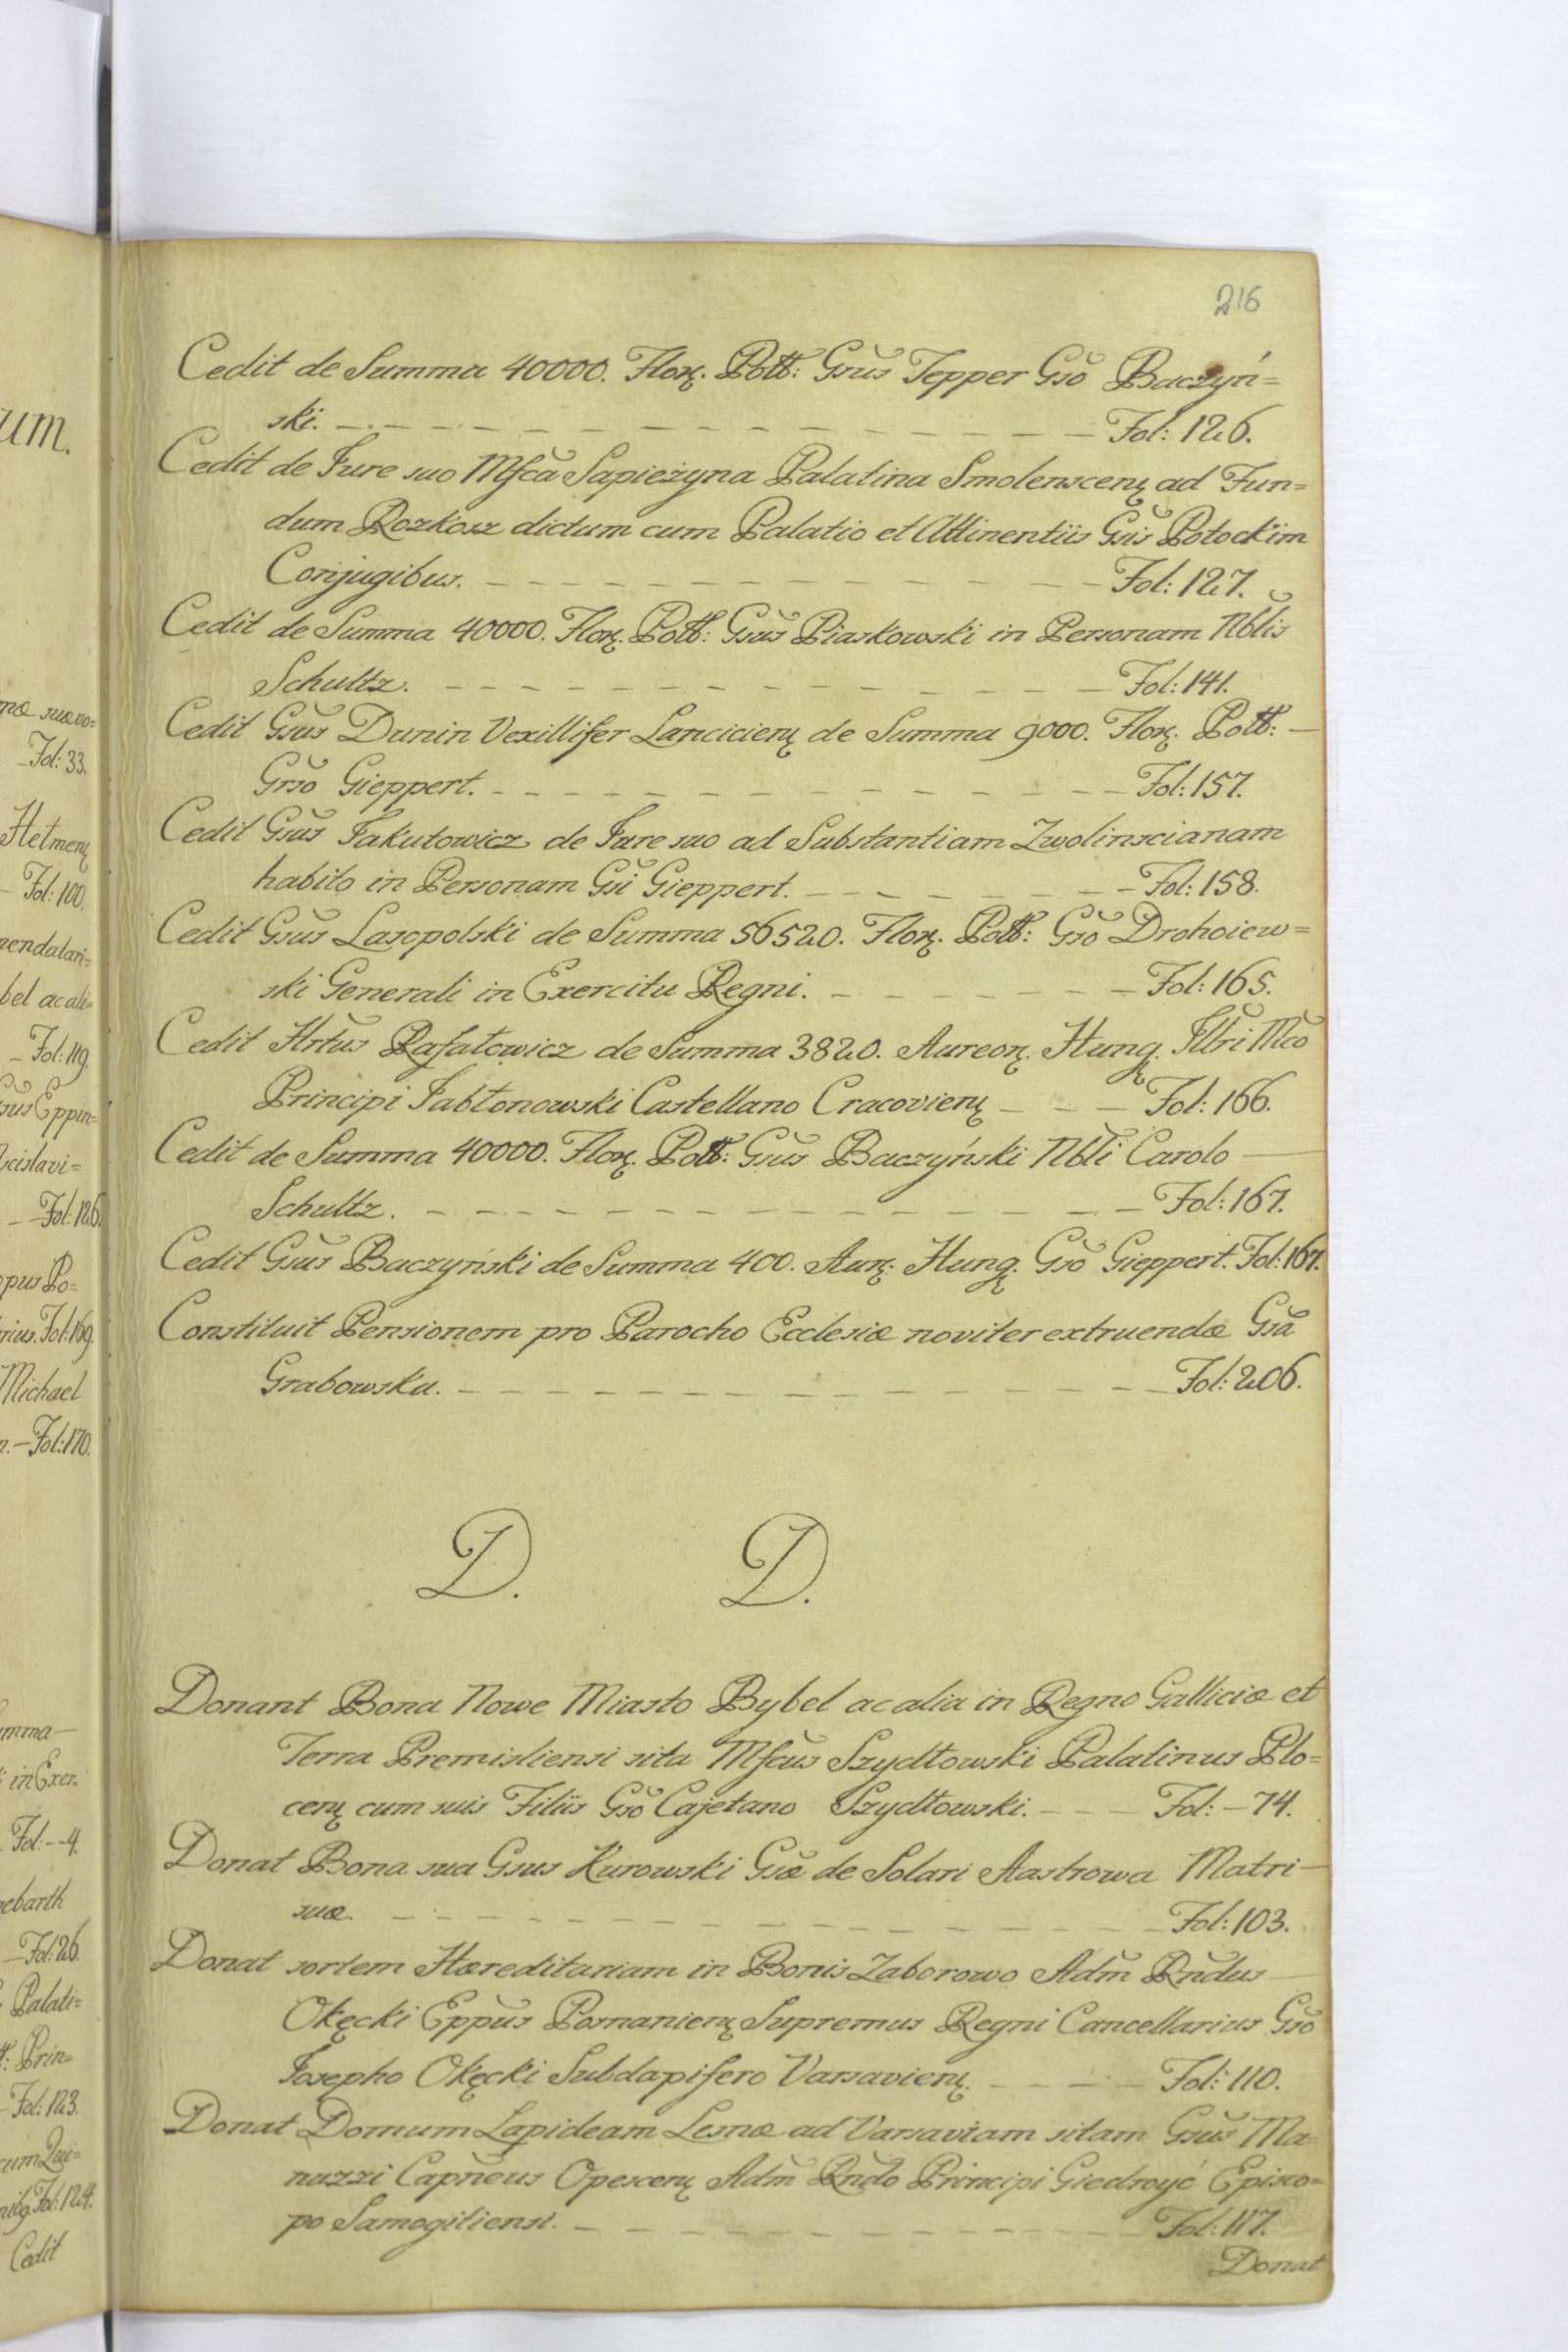 216
Cedit de Summa 40000. Florę. Poll: Gsus Tepper Gso Baczyń=
ski. Fol: 126.
Cedit de Jure suo Mfca Sapieżyna Palatina Smolenscenę ad Fun=
dum Rozkosz dictum cum Palatio et Attinentiis Gsis Potockim
Conjugibus. Fol: 127.
Cedit de Summa 40000. Florę. Poll: Gsus Piaskowski in Personam Nblis
Schultz. Fol: 141.
Cedit Gsus Dunin Vexillifer Lancicienę de Summa 9000. Florę. Poll:
Grso Gieppert. Fol: 157.
Cedit Gsus Jakutowicz de Jure suo ad Substantiam Zwolinscianam
habito in Personam Gsi Gieppert. Fol: 158.
Cedit Gsus Lasopolski de Summa 56520. Florę. Poll: Gso Drohoiew=
ski Generali in Exercitu Regni. Fol: 165.
Cedit Hrtus Rafałowicz de Summa 3820. Aureorę. Hung. Illri Mco
Principi Jabłonowski Castellano Cracovienę Fol: 166.
Cedit de Summa 40000. Florę. Poll: Gsus Baczyński Nbli Carolo
Schultz. Fol: 167.
Cedit Gsus Baczyński de Summa 400. Aurę. Hung. Gso Gieppert. Fol: 167.
Constituit Pensionem pro Parocho Ecclesiæ noviter extruendæ Gsa
Grabowska. Fol: 206.
D. D.
Donant Bona Nowe Miasto Bybel ac alia in Regno Galliciæ et
Terra Premisliensi sita Mfcus Szydłowski Palatinus Plo=
cenę cum suis Filiis Gso Cajetano Szydłowski. Fol: 74.
Donat Bona sua Gsus Kurowski Gsæ de Solari Aastrowa Matri
suæ. Fol: 103.
Donat sortem Hæreditariam in Bonis Zaborowo Adm Rndus
Okęcki Eppus Posnanienę Supremus Regni Cancellarius Gso
Josepho Okęcki Subdapifero Varsavienę. Fol: 110.
Donat Domum Lapideam Lesnæ ad Varsaviam sitam Gsus Ma=
nuzzi Capneus Opescenę Adm Rndo Principi Giedroyć Episco=
po Samogitiensi. Fol: 117.
Donat